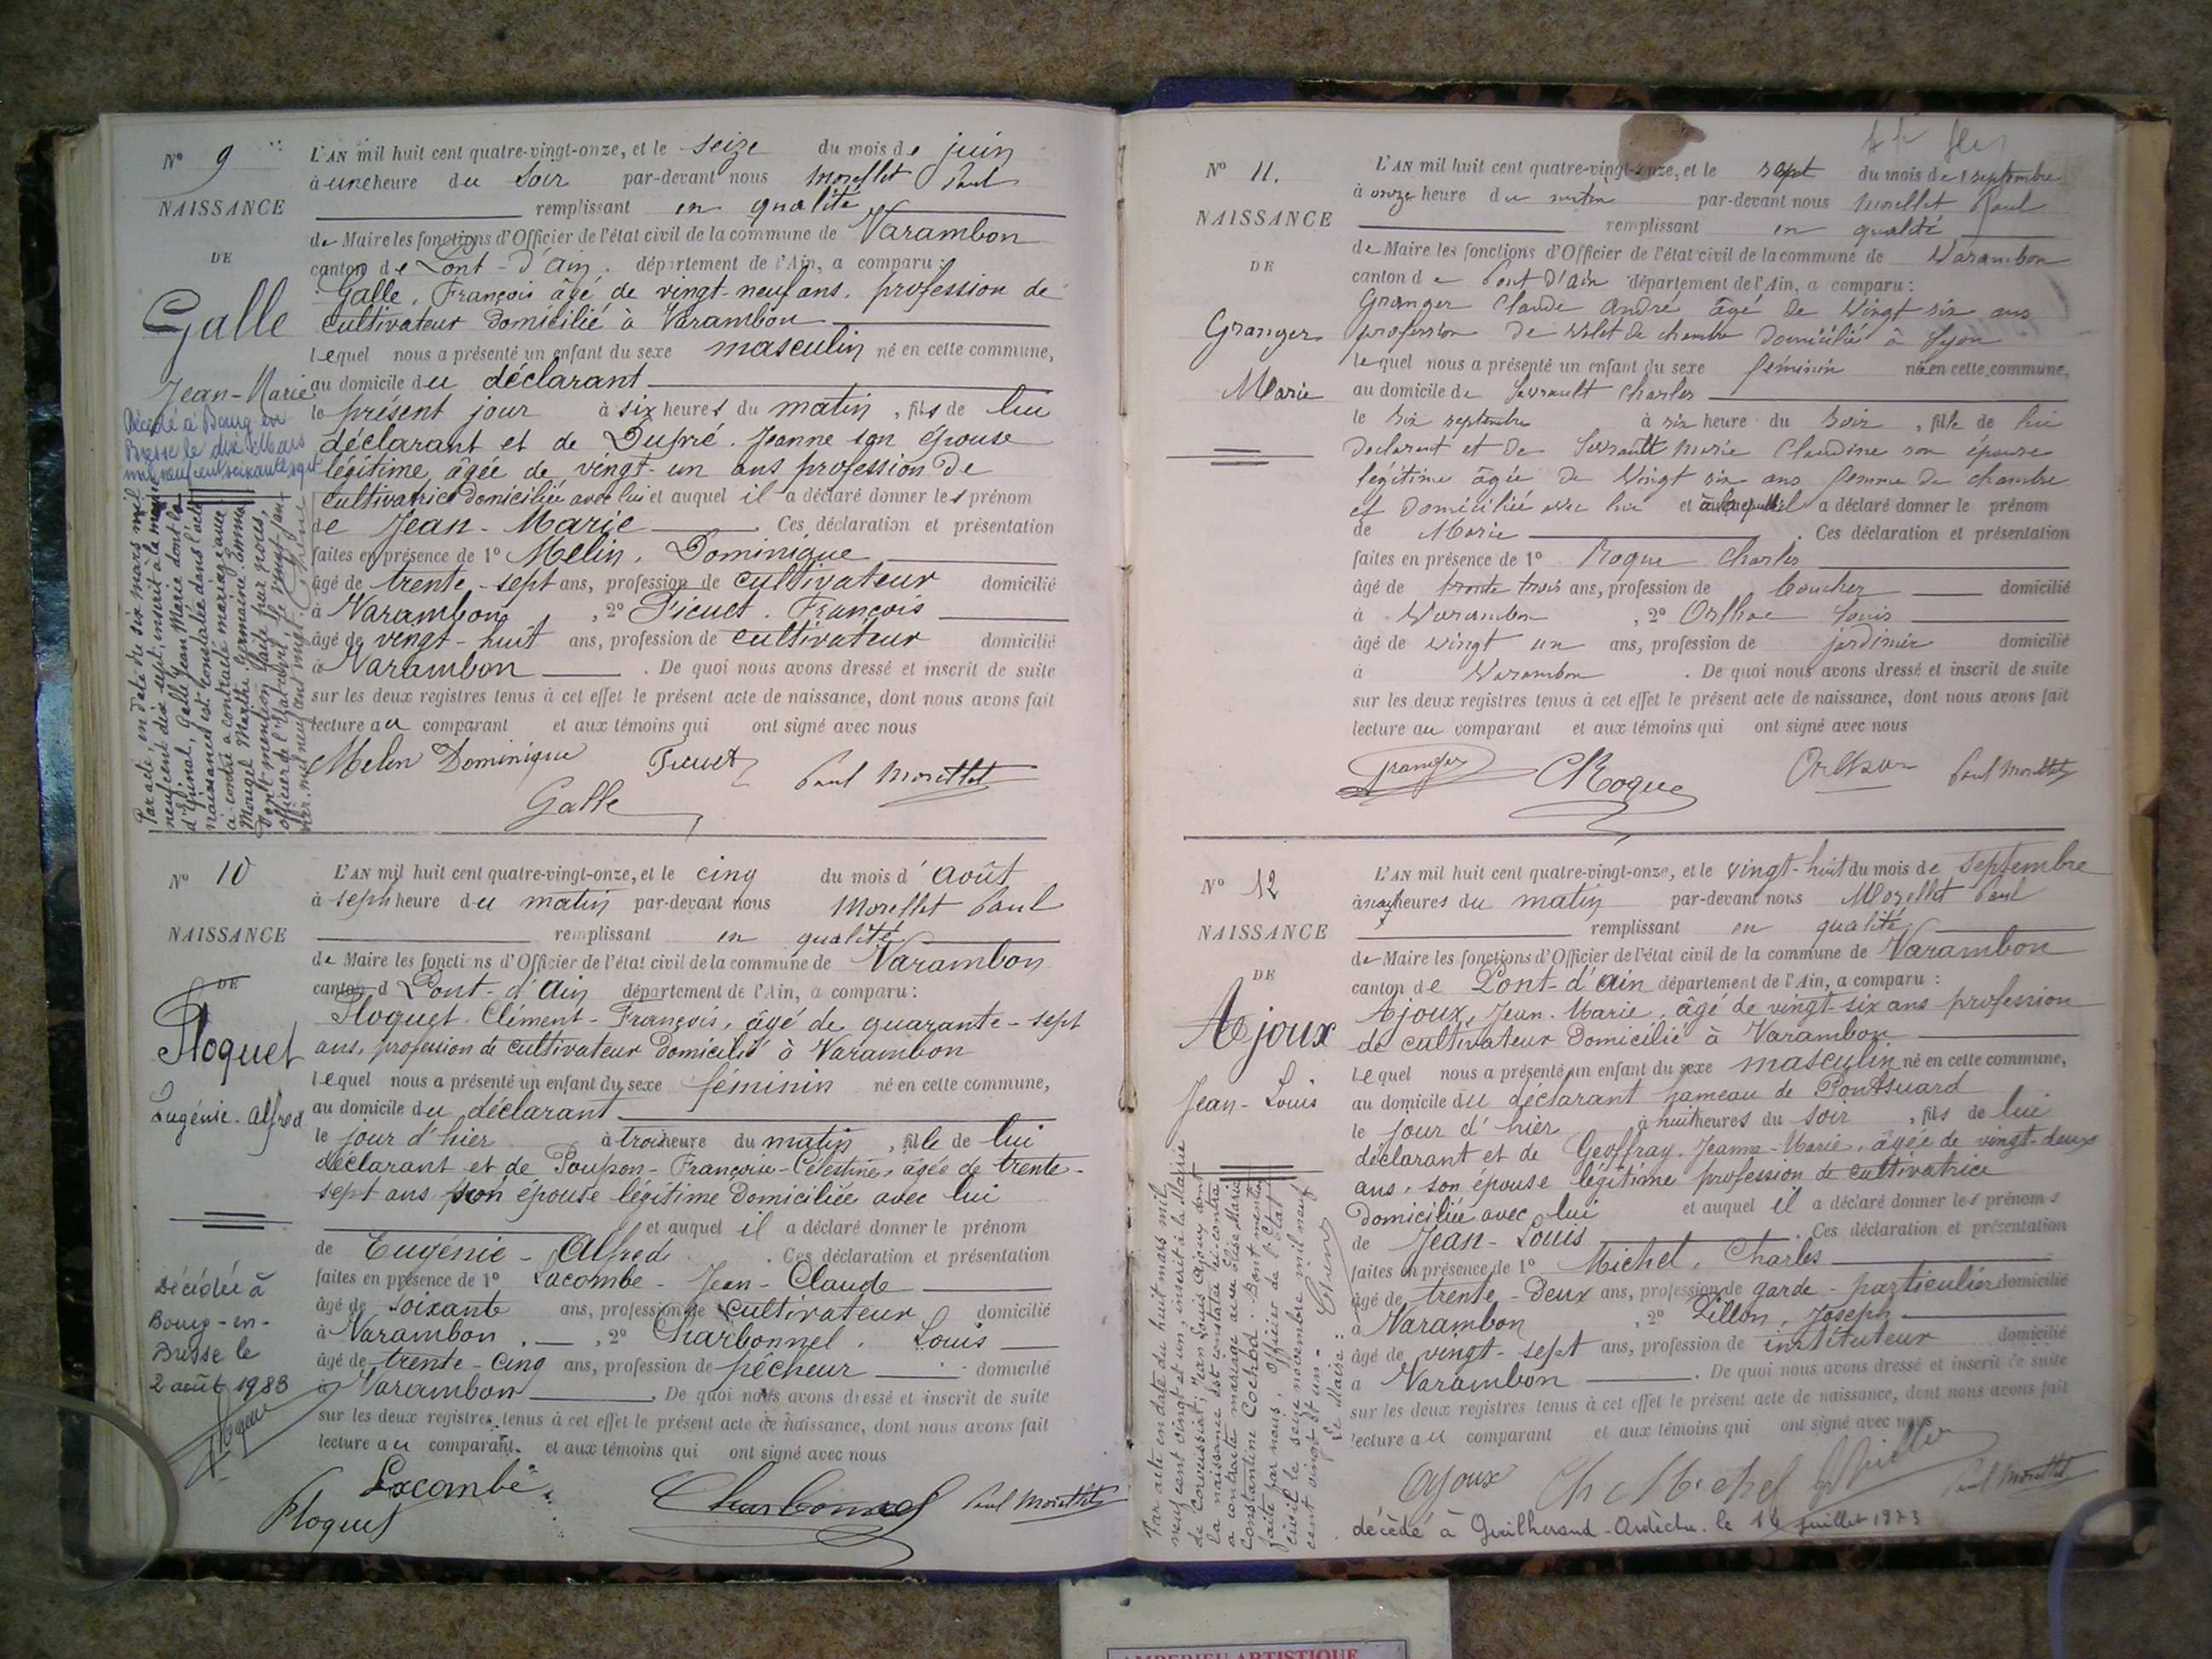 N° 9
NAISSANCE
DE
Galle
Jean-Marie
Décédé à Bourg en
Bresse le dix Mars
mil neuf cent soixante sept
Par acte, en date du six mars mil
neuf cent dix sept, inscrit à la mairie
d'Epinal, Galle Jean Marie dont la
naissance est constatée dans l'acte
ci-contre a contracté mariage avec
Mougel Marthe Germaine Emma
Dont mention faite par nous,
officier de l'Etat civil, le vingt
mil neuf cent vingt.
L'AN mil huit cent quatre-vingt-onze, et le seize du mois de juin
à une heure du soir par-devant nous Morellet Paul
remplissant en qualité
de Maire les fonctions d'Officier de l'état civil de la commune de Varambon
canton de Pont-d'Ain. département de l'Ain, a comparu :
Galle, François âgé de vingt-neuf ans, profession de
cultivateur domicilié à Varambon
Lequel nous a présenté un enfant du sexe masculin né en cette commune,
au domicile du déclarant
le présent jour à six heures du matin, fils de lui
déclarant et de Dupré. Jeanne son épouse
légitime, âgée de vingt-un ans profession de
cultivatrice domiciliée avec lui et auquel il a déclaré donner les prénom
de Jean-Marie. Ces déclaration et présentation
faites en présence de 1° Melin, Dominique
âgé de trente-sept ans, profession de cultivateur domicilié
à Varambon, 2° Picuet. François
âgé de vingt-huit ans, profession de cultivateur domicilié
à Varambon. De quoi nous avons dressé et inscrit de suite
sur les deux registres tenus à cet effet le présent acte de naissance, dont nous avons fait
lecture au comparant et aux témoins qui ont signé avec nous
Melin Dominique Picuet Paul Morellet
Galle
N° 10
NAISSANCE
DE
Floquet
Eugénie-Alfred
Décédée à
Bourg-en-
Bresse le
2 août 1983
L'AN mil huit cent quatre-vingt-onze, et le cinq du mois d'août
à sept heure du matin par-devant nous Morellet Paul
remplissant en qualité
de Maire les fonctions d'Officier de l'état civil de la commune de Varambon
canton d Pont-d'Ain département de l'Ain, a comparu :
Floquet. Clément-François, âgé de quarante-sept
ans, profession de cultivateur domicilié à Varambon
Lequel nous a présenté un enfant du sexe féminin né en cette commune,
au domicile du déclarant
le jour d'hier à trois heure du matin, fille de lui
déclarant et de Poupon-Françoise-Célestine, âgée de trente-
sept ans son épouse légitime domiciliée avec lui
et auquel il a déclaré donner le prénom
de Eugénie-Alfred. Ces déclaration et présentation
faites en présence de 1° Lacombe-Jean-Claude
âgé de soixante ans, profession de cultivateur domicilié
à Varambon, 2° Charbonnel. Louis
âgé de trente-cinq ans, profession de pêcheur domicilié
à Varambon. De quoi nous avons dressé et inscrit de suite
sur les deux registres tenus à cet effet le présent acte de naissance, dont nous avons fait
lecture au comparant et aux témoins qui ont signé avec nous
Lacombe Charbonnel Paul Morellet
Floquet
N° 11.
NAISSANCE
DE
Granger
Marie
L'AN mil huit cent quatre-vingt-onze, et le sept du mois de septembre
à onze heure du matin par-devant nous Morellet Paul
remplissant en qualité
de Maire les fonctions d'Officier de l'état civil de la commune de Varambon
canton de Pont d'Ain département de l'Ain, a comparu :
Granger Claude André âgé de vingt six ans
profession de valet de chambre domicilié à Lyon
lequel nous a présenté un enfant du sexe féminin né en cette commune,
au domicile de Charles
le six septembre à six heure du soir, fille de lui
déclarant et de Marie Claudine son épouse
légitime âgée de vingt six ans femme de chambre
et domiciliée avec lui et à laquelle il a déclaré donner le prénom
de Marie. Ces déclaration et présentation
faites en présence de 1° Roque Charles
âgé de trente trois ans, profession de boucher domicilié
à Varambon, 2° Louis
âgé de vingt un ans, profession de jardinier domicilié
à Varambon. De quoi nous avons dressé et inscrit de suite
sur les deux registres tenus à cet effet le présent acte de naissance, dont nous avons fait
lecture au comparant et aux témoins qui ont signé avec nous
Granger CRoque Paul Morellet
N° 12
NAISSANCE
DE
Ajoux
Jean-Louis
Par acte en date du huit mars mil
neuf cent vingt et un, inscrit à la Mairie
de Corveissiat, Jean Louis Ajoux dont
la naissance est constatée ci-contre
a contracté mariage avec Elise Marie
Constantine Cochod. Dont mention
faite par nous, officier de l'Etat
civil le seize novembre mil neuf
cent vingt et un.
Le Maire :
L'AN mil huit cent quatre-vingt-onze, et le vingt-huit du mois de septembre
à neuf heures du matin par-devant nous Morellet Paul
remplissant en qualité
de Maire les fonctions d'Officier de l'état civil de la commune de Varambon
canton de Pont-d'Ain département de l'Ain, a comparu :
Ajoux, Jean-Marie, âgé de vingt-six ans profession
de cultivateur domicilié à Varambon
Lequel nous a présenté un enfant du sexe masculin né en cette commune,
au domicile du déclarant hameau de Pontsuard
le jour d'hier à huit heures du soir, fils de lui
déclarant et de Geoffray. Jeanne-Marie, âgée de vingt-deux
ans, son épouse légitime profession de cultivatrice
domiciliée avec lui et auquel il a déclaré donner les prénoms
de Jean-Louis. Ces déclaration et présentation
faites en présence de 1° Michel, Charles
âgé de trente-deux ans, profession de garde-particulier domicilié
à Varambon, 2° Pillon, Joseph
âgé de vingt-sept ans, profession de instituteur domicilié
à Varambon. De quoi nous avons dressé et inscrit de suite
sur les deux registres tenus à cet effet le présent acte de naissance, dont nous avons fait
lecture au comparant et aux témoins qui ont signé avec nous
Ajoux Ch Michel Paul Morellet
décédé à Guilherand-Ardèche le 14 juillet 1973
AMBERIEU ARTISTIQUE